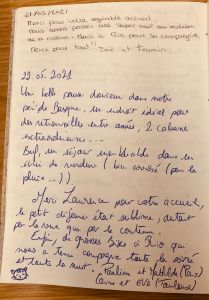 21/05/2021
Merci pour votre agréable accueil
nous avons passés une super nuit au milieu
de la nature. Merci à Rio pour sa compagnie
Merci pour tout!! Zoé et
29.05.2021
Une belle pause douceur dans notre
de Basque, un endroit idéal pour
des retrouvailles entre amies, 2 cabane
extraordinaire...
Bref, un séjour inoubliable dans un
écrin de verdure (bien arrosé (par la
pluie...))
Merci Laurence pour votre accueil,
le petit déjeuné était sublime, autant
par la vue que par le contenu.
Enfin, de grosses bises à Rio qui
nous a tenu compagnie toute la soirée
et toute la nuit. Pauline et Mathilde (Pau)
et Eve (Toulouse)